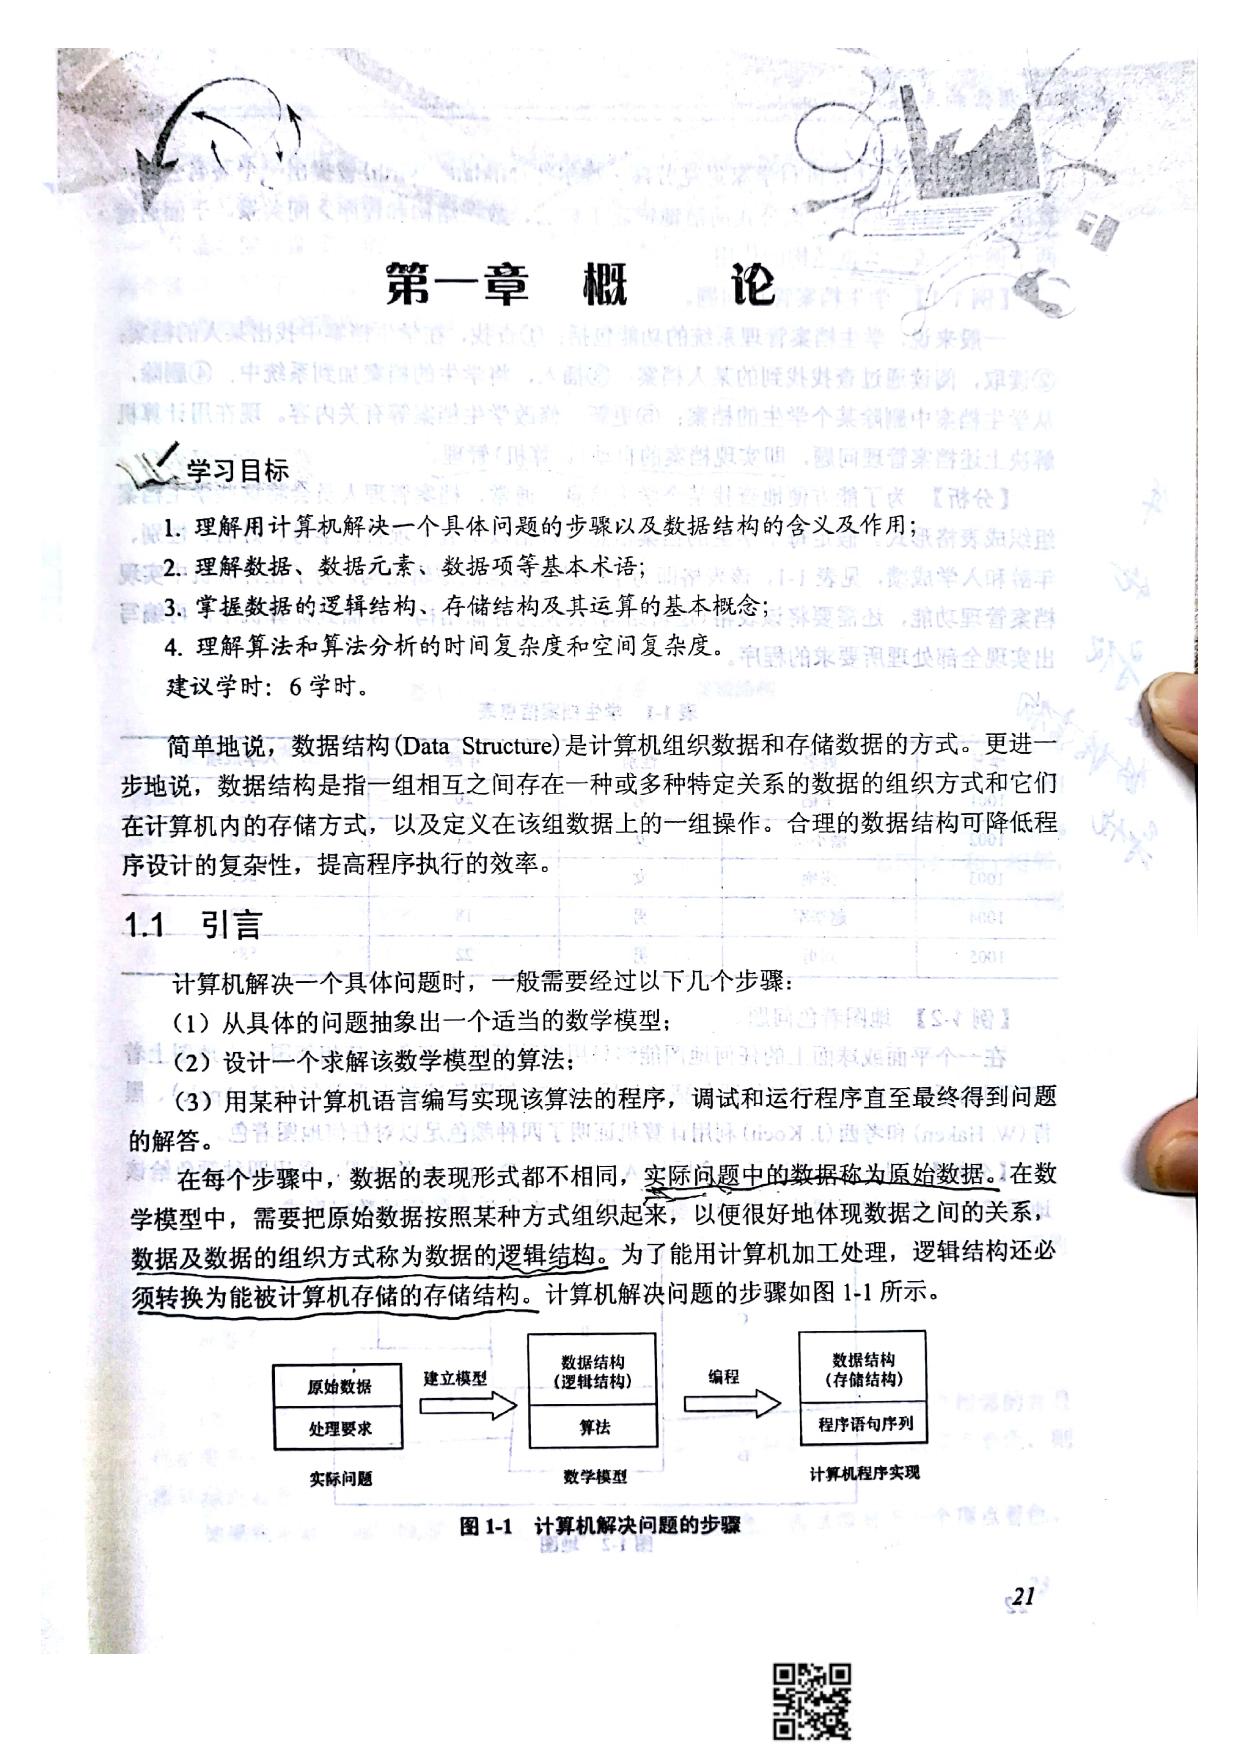 第一章 概 论
学习目标
1. 理解用计算机解决一个具体问题的步骤以及数据结构的含义及作用；
2. 理解数据、数据元素、数据项等基本术语；
3. 掌握数据的逻辑结构、存储结构及其运算的基本概念；
4. 理解算法和算法分析的时间复杂度和空间复杂度。
建议学时：6 学时。
简单地说，数据结构(Data Structure)是计算机组织数据和存储数据的方式。更进一
步地说，数据结构是指一组相互之间存在一种或多种特定关系的数据的组织方式和它们
在计算机内的存储方式，以及定义在该组数据上的一组操作。合理的数据结构可降低程
序设计的复杂性，提高程序执行的效率。
1.1 引言
计算机解决一个具体问题时，一般需要经过以下几个步骤：
（1）从具体的问题抽象出一个适当的数学模型；
（2）设计一个求解该数学模型的算法；
（3）用某种计算机语言编写实现该算法的程序，调试和运行程序直至最终得到问题
的解答。
在每个步骤中，数据的表现形式都不相同，实际问题中的数据称为原始数据。在数
学模型中，需要把原始数据按照某种方式组织起来，以便很好地体现数据之间的关系，
数据及数据的组织方式称为数据的逻辑结构。为了能用计算机加工处理，逻辑结构还必
须转换为能被计算机存储的存储结构。计算机解决问题的步骤如图 1-1 所示。
原始数据
处理要求
实际问题
建立模型
数据结构
（逻辑结构）
算法
数学模型
编程
数据结构
（存储结构）
程序语句序列
计算机程序实现
图 1-1 计算机解决问题的步骤
21